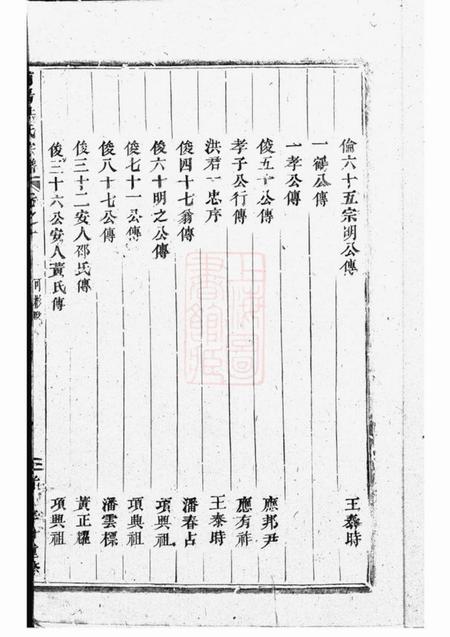 倫六十五宗明公傳 王泰時
一鶴公傳
一孝公傳
俊五十公傳 應邦尹
孝子公行傳 應有祥
洪君一忠序 王泰時
俊四十七翁傳 潘春占
俊六十明之公傳 項興祖
俊七十一公傳 項興祖
俊八十七公傳 潘雲標
俊三十二安人邵氏傳 黃正躍
俊三十六公安人黃氏傳 項興祖
上海圖
書館藏